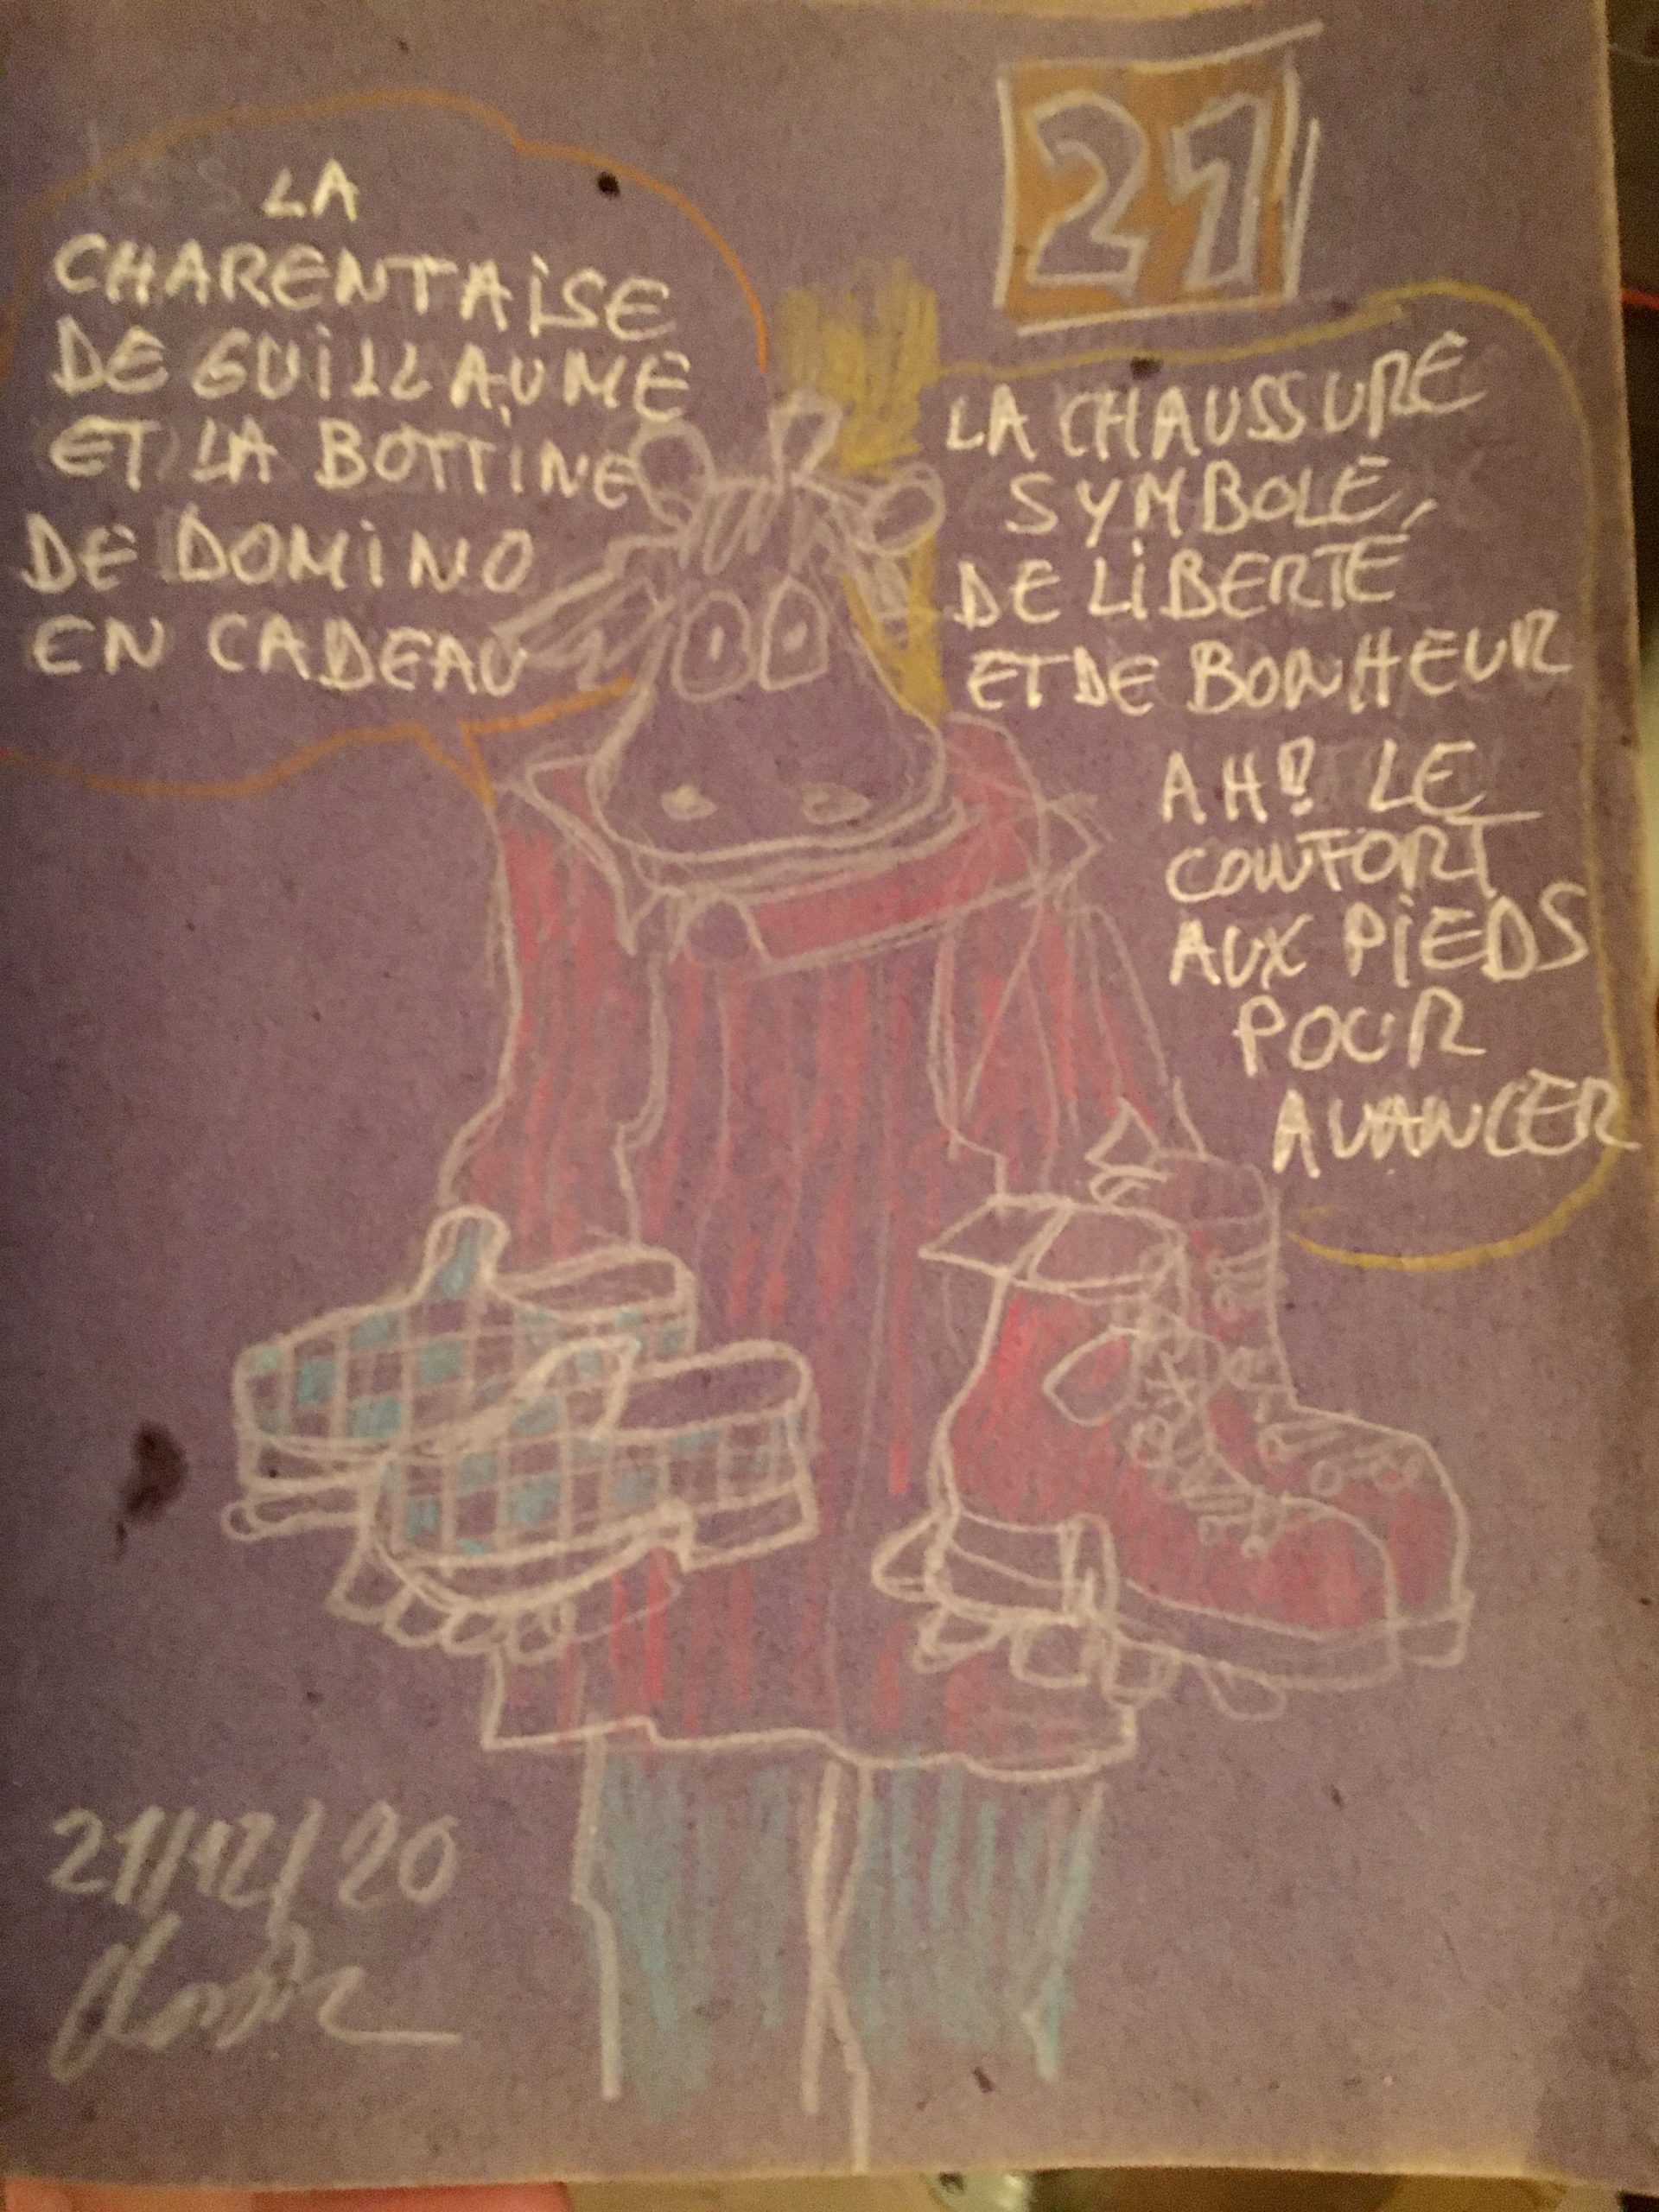 LA
CHARENTAISE
DE GUILLAUME
ET LA BOTTINE
DE DOMINO
EN CADEAU
21
LA CHAUSSURE
SYMBOLE,
DE LIBERTE
ET DE BONHEUR
AH! LE
CONFORT
AUX PIEDS
POUR
AVANCER
21/12/20